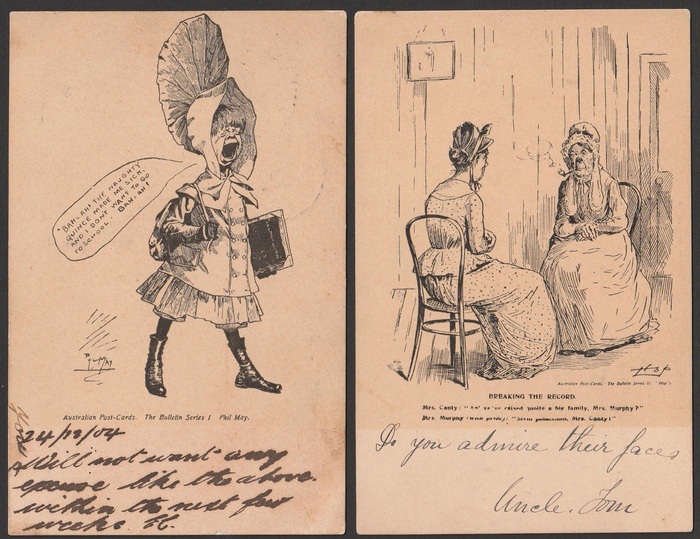 "BAH-AH! THE NAUGHTY
QUINCE MADE ME SICK,
AND I DON'T WANT TO GO
TO SCHOOL. BAH-AH!
PHIL MAY
Australian Post-Cards. The Bulletin Series I Phil May.
24/12/04
Will not want any
excuse like the above
within the next few
weeks.
Hop
Australian Post-Cards. The Bulletin Series II. "Hop"
BREAKING THE RECORD.
Mrs. Canty: "An' ye've raised quite a big family, Mrs. Murphy?"
Mrs. Murphy (with pride): "Sivin polacemin, Mrs. Canty!"
Do you admire their faces
Uncle. Tom